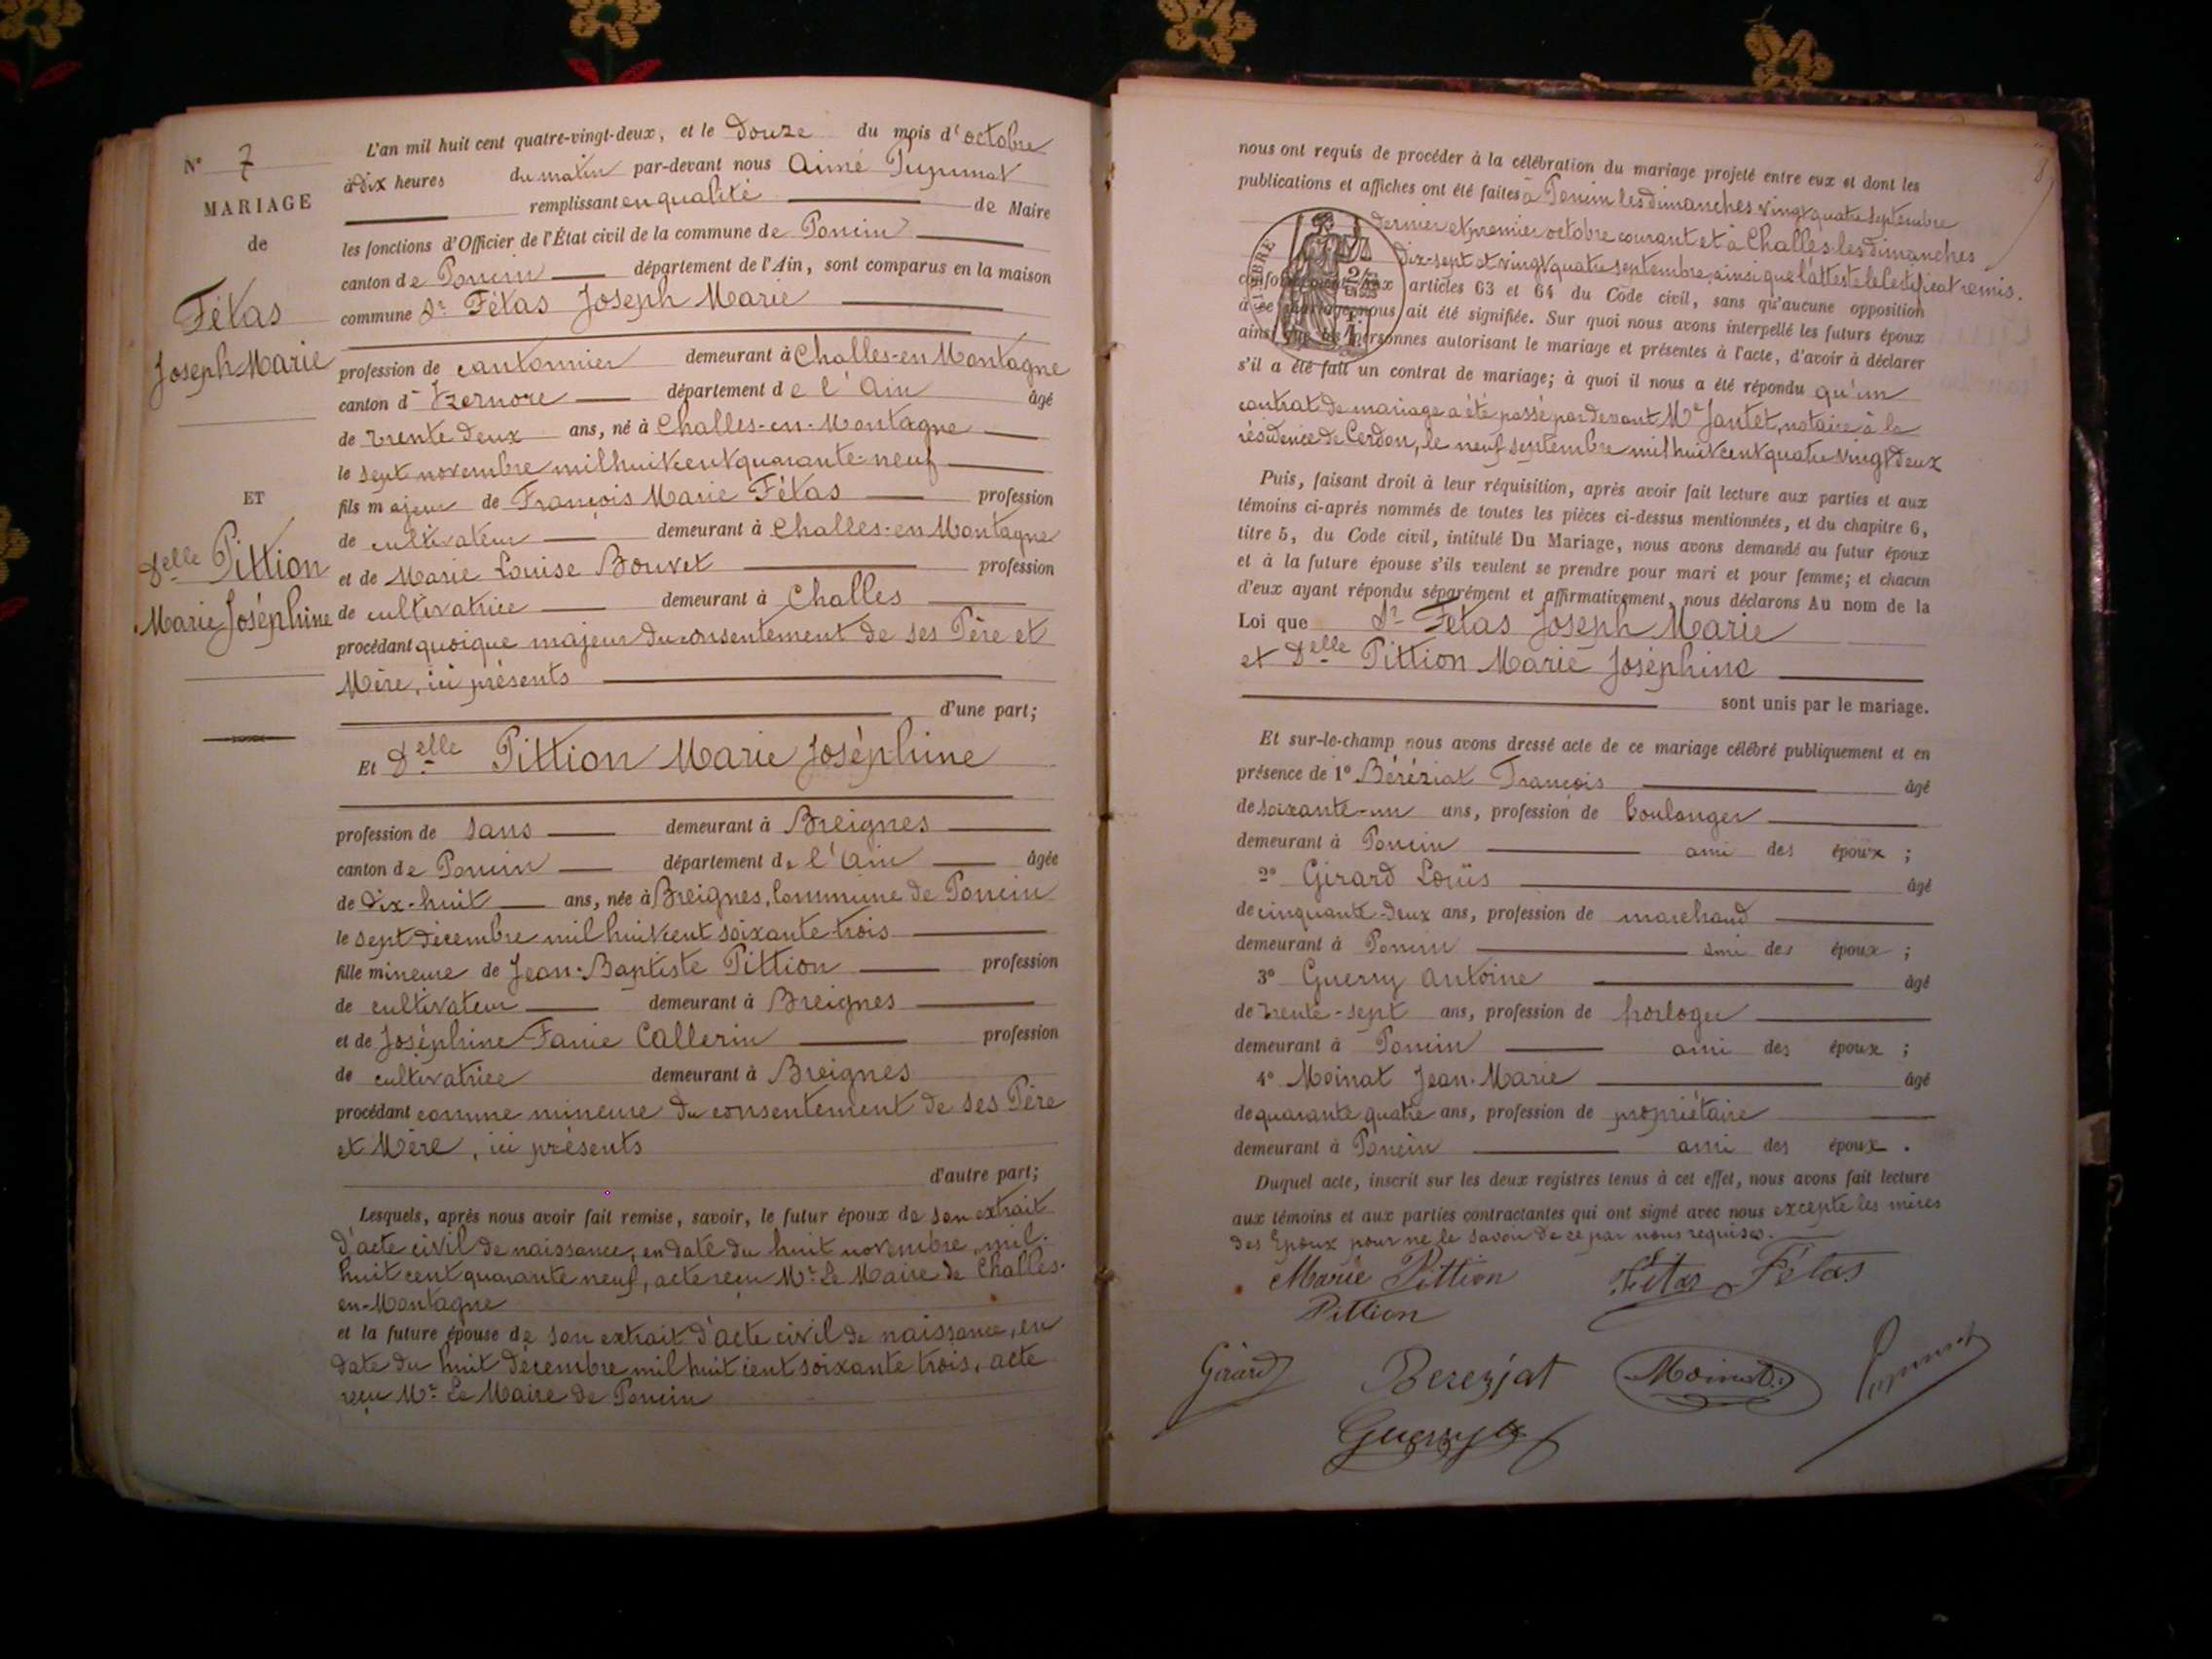 N° 7
MARIAGE
de
Fétas
Joseph Marie
ET
Delle Pittion
Marie Joséphine
L'an mil huit cent quatre-vingt-deux, et le douze du mois d'octobre
à dix heures du matin par-devant nous Aimé
remplissant en qualité de Maire
les fonctions d'Officier de l'État civil de la commune de Poncin
canton de Poncin département de l'Ain, sont comparus en la maison
commune Sr Fétas Joseph Marie
profession de cantonnier demeurant à Challes-en-Montagne
canton d'Izernore département de l'Ain âgé
de trente deux ans, né à Challes-en-Montagne
le sept novembre mil huit cent quarante-neuf
fils majeur de François Marie Fétas profession
de cultivateur demeurant à Challes-en-Montagne
et de Marie Louise Bouvet profession
de cultivatrice demeurant à Challes
procédant quoique majeur du consentement de ses Père et
Mère, ici présents
d'une part;
Et Delle Pittion Marie Joséphine
profession de sans demeurant à Breignes
canton de Poncin département de l'Ain âgée
de dix-huit ans, née à Breignes, commune de Poncin
le sept décembre mil huit cent soixante-trois
fille mineure de Jean-Baptiste Pittion profession
de cultivateur demeurant à Breignes
et de Joséphine Fanie Callerin profession
de cultivatrice demeurant à Breignes
procédant comme mineure du consentement de ses Père
et Mère, ici présents
d'autre part;
Lesquels, après nous avoir fait remise, savoir, le futur époux de son extrait
d'acte civil de naissance, en date du huit novembre mil-
huit cent quarante neuf, acte reçu Mr Le Maire de Challes-
en-Montagne
et la future épouse de son extrait d'acte civil de naissance, en
date du huit décembre mil huit cent soixante trois, acte
reçu Mr Le Maire de Poncin
nous ont requis de procéder à la célébration du mariage projeté entre eux et dont les
publications et affiches ont été faites à Poncin les dimanches vingt quatre septembre
dernier et premier octobre courant et à Challes les dimanches
dix-sept et vingt quatre septembre, ainsi que l'atteste le certificat remis.
TIMBRE
conformément aux articles 63 et 64 du Code civil, sans qu'aucune opposition
à ce mariage nous ait été signifiée. Sur quoi nous avons interpellé les futurs époux
ainsi que les personnes autorisant le mariage et présentes à l'acte, d'avoir à déclarer
s'il a été fait un contrat de mariage; à quoi il nous a été répondu qu'un
contrat de mariage a été passé par devant Me Jantet, notaire à la
résidence de Cerdon, le neuf septembre mil huit cent quatre vingt deux
Puis, faisant droit à leur réquisition, après avoir fait lecture aux parties et aux
témoins ci-après nommés de toutes les pièces ci-dessus mentionnées, et du chapitre 6,
titre 5, du Code civil, intitulé Du Mariage, nous avons demandé au futur époux
et à la future épouse s'ils veulent se prendre pour mari et pour femme; et chacun
d'eux ayant répondu séparément et affirmativement, nous déclarons Au nom de la
Loi que Sr Fétas Joseph Marie
et Delle Pittion Marie Joséphine
sont unis par le mariage.
Et sur-le-champ nous avons dressé acte de ce mariage célébré publiquement et en
présence de 1° Béréziat François âgé
de soixante-un ans, profession de boulanger
demeurant à Poncin ami des époux ;
2° Girard Louis âgé
de cinquante-deux ans, profession de marchand
demeurant à Poncin ami des époux ;
3° Guerry Antoine âgé
de trente-sept ans, profession de horloger
demeurant à Poncin ami des époux ;
4° Moinat Jean-Marie âgé
de quarante quatre ans, profession de propriétaire
demeurant à Poncin ami des époux .
Duquel acte, inscrit sur les deux registres tenus à cet effet, nous avons fait lecture
aux témoins et aux parties contractantes qui ont signé avec nous excepté les mères
des Epoux pour ne le savoir de ce par nous requises.
Marie Pittion Fétas Fétas
Pittion
Girard Berezjat Moinat
Guerry